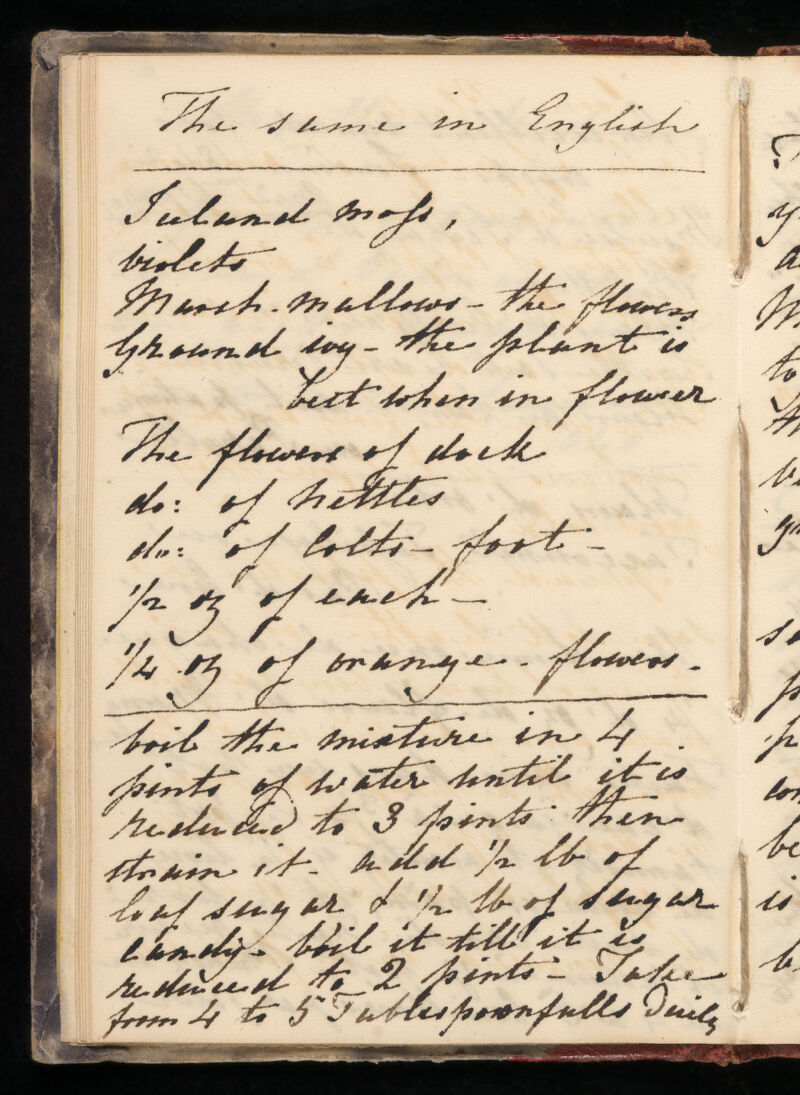 The same in English
Iceland moſs,
violets
Marsh-mallows - the flowers
Ground ivy - the plant is
best when in flower
The flowers of dock
do: of nettles
do: of Colts-foot -
1/2 oz of each -
1/4 oz of orange-flowers -
boil the mixture in 4
pints of water until it is
reduced to 3 pints then
strain it - add 1/2 lb of
loaf sugar & 1/2 lb of sugar
candy - boil it till it is
reduced to 2 pints - Take
from 4 to 5 Tablespoonfulls Daily